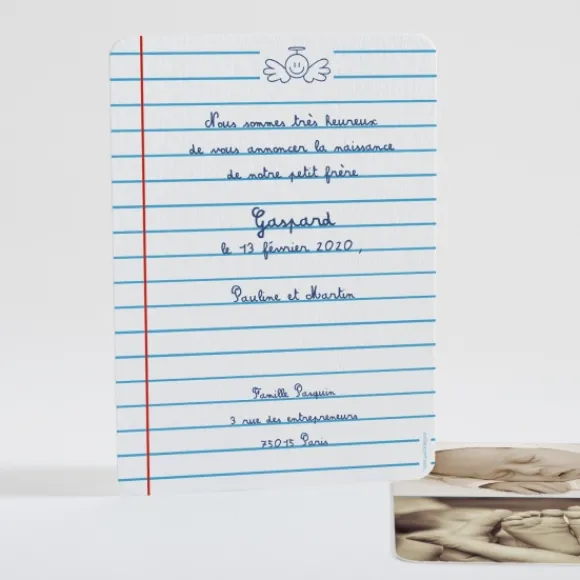 Nous sommes très heureux
de vous annoncer la naissance
de notre petit frère
Gaspard
le 13 février 2020,
Pauline et Martin
Famille Pasquin
3 rue des entrepreneurs
75015 Paris